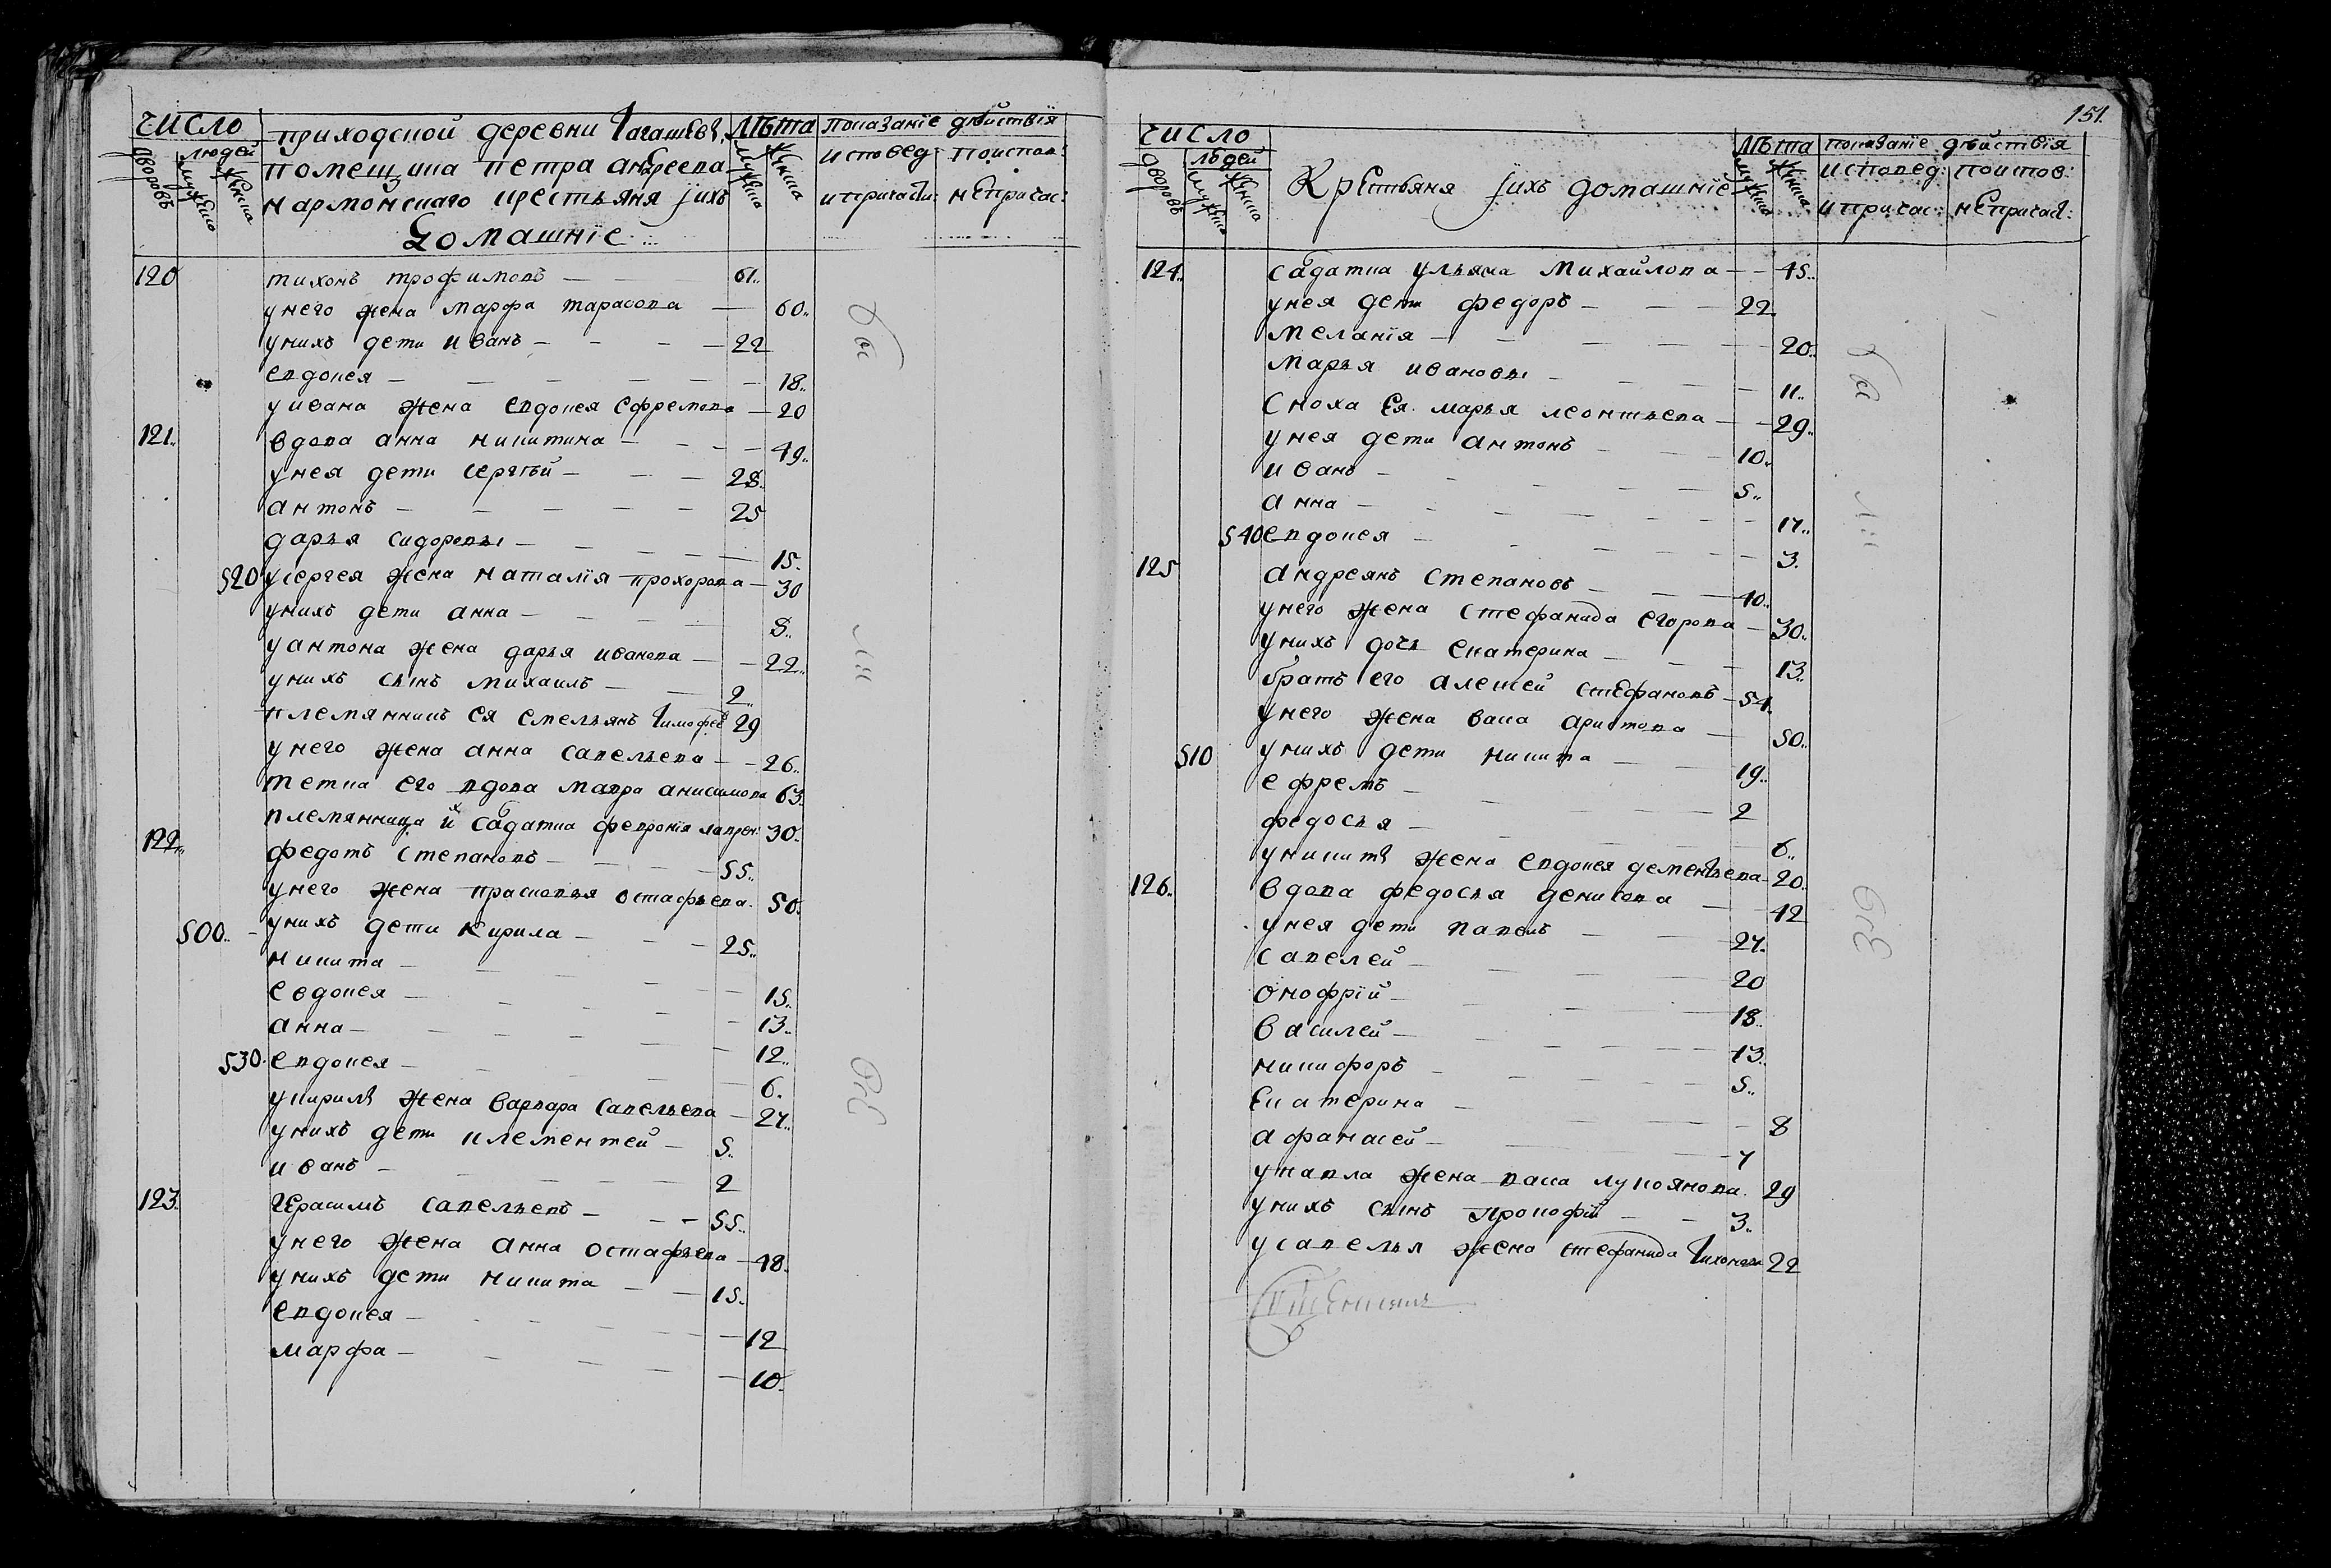 число
приходской деревни Тагашевѣ
лѣта
показанїе дѣйствїя
дворовъ
людей
мужеска
женска
помещика петра андреева
мужеска
женска
исповед: поиспов:
кармонскаго крестьяня ј ихъ
и причаст: не причас:
домашнїе
120 тихонъ трофимовъ 61
у него жена марфа тарасова 60
у нихъ дети иванъ 22
евдокея 18
у ивана жена евдокея ефремова 20
121 вдова анна никитина 49
у нея дети сергѣй 28
антонъ 25
дарья сидоровы 15
520 у сергея жена наталїя прохорова 30
у нихъ дети анна 8
у антона жена дарья иванова 22
у нихъ сынъ михаилъ 2
племянникъ ея емельянъ тимофеѣ 29
у него жена анна савельева 26
тетка его вдова мавра анисимова 63
племянница их салдатка февронїя лаврен: 30
122 федотъ степановъ 55
у него жена прасковья остафьева 50
500 у нихъ дети кирила 25
никита 15
евдокея 13
анна 12
530 евдокея 6
у кирилѣ жена варвара савельева 27
у нихъ дети клементей 5
иванъ 2
123 герасимъ савельевъ 55
у него жена анна остафьева 48
у нихъ дети никита 15
евдокея 12
марфа 10
151
число
лѣта
показанїе дѣйствїя
дворовъ
людей
мужеска
женска
Крестьяня ј ихъ домашнїе
мужеска
женска
исповед: поиспов:
и причас: не причас:
124 салдатка ульяна михайлова 45
у нея дети федоръ 22
меланїя 20
марья ивановы 11
сноха ея марья леонтьева 29
у нея дети антонъ 10
иванъ 5
анна 17
540 евдокея 3
125 андреянъ степановъ 40
у него жена стефанида егорова 30
у нихъ дочь екатерина 13
братъ его алексей стефановъ 54
у него жена васа аристова 50
510 у нихъ дети никита 19
ефремъ 2
федосья 6
у никитѣ жена евдокея дементьева 20
126 вдова федосья денисова 42
у нея дети павелъ 27
савелей 20
онофрїй 18
василей 13
никифоръ 5
екатерина 8
афанасей 7
у павла жена васа лукоянова 29
у нихъ сынъ прокофїй 3
у савелья жена стефанида тихонова 22